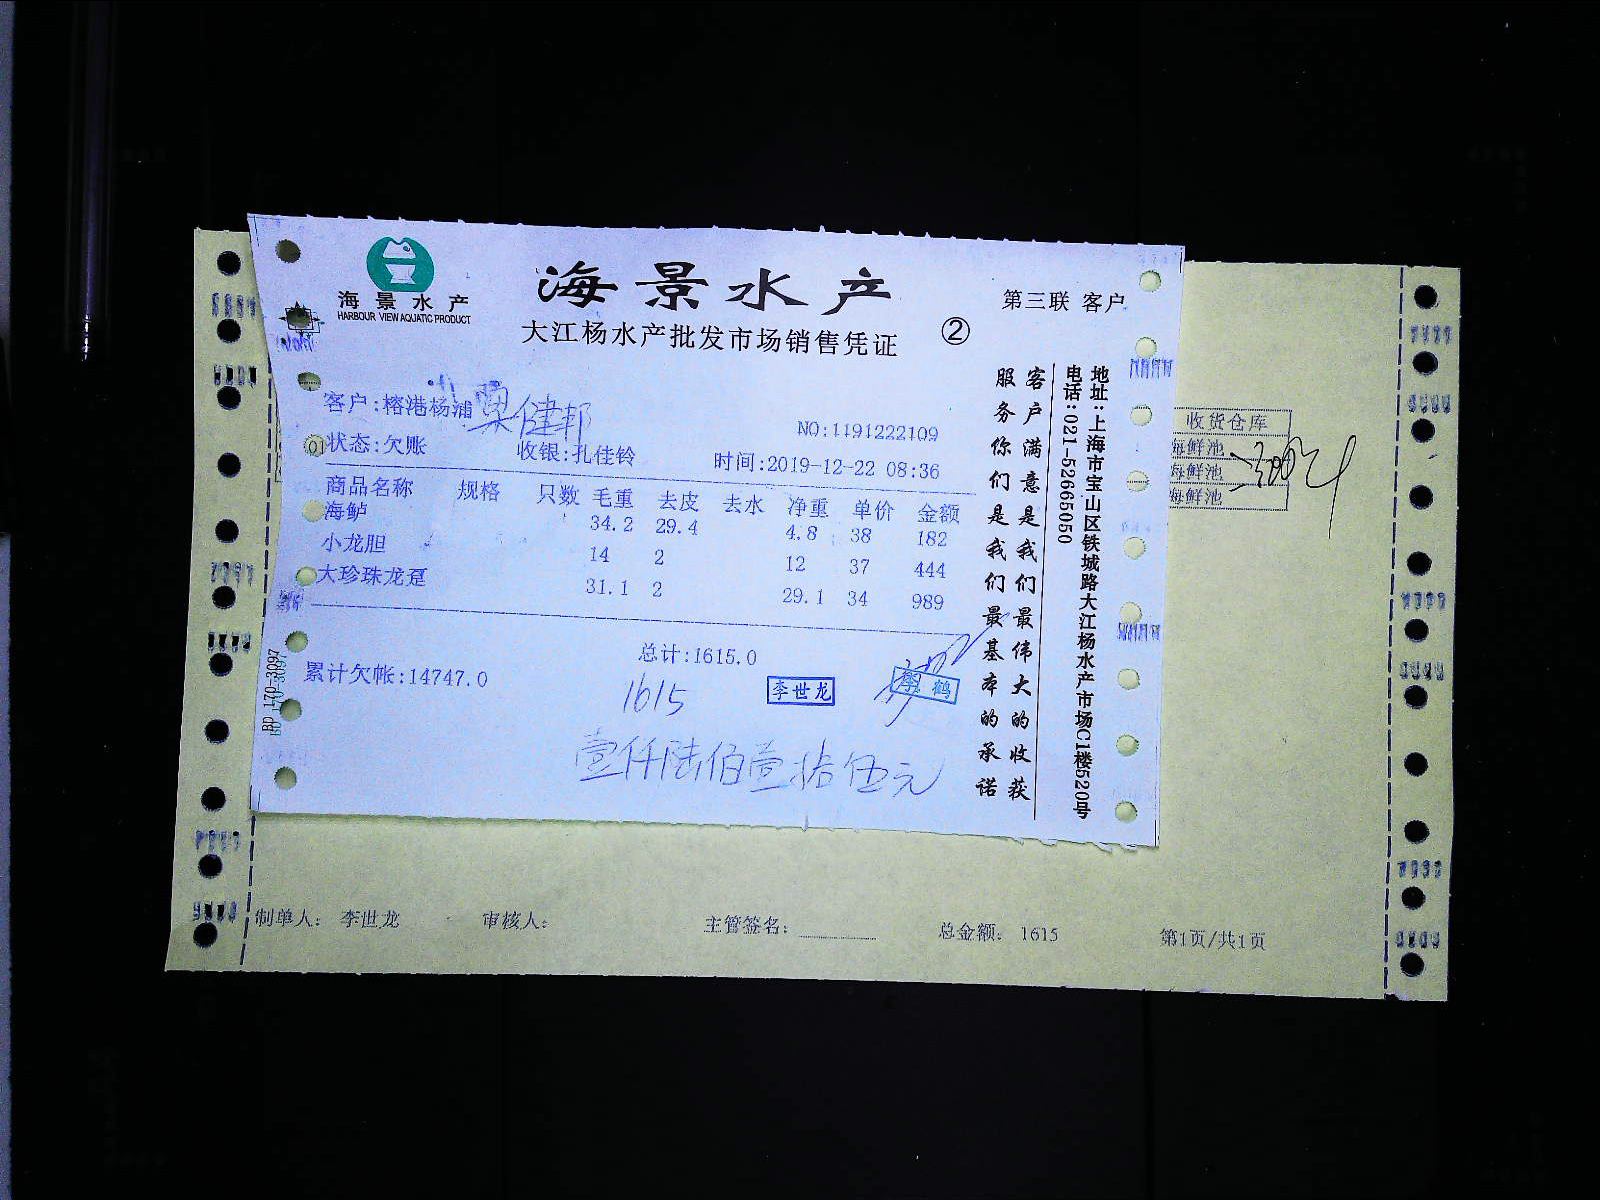 海景水产
HARBOUR VIEW AQUATIC PRODUCT
海景水产
大江杨水产批发市场销售凭证
②
第三联 客户
客户:榕港杨浦
NO:1191222109
状态:欠账 收银:孔佳铃 时间:2019-12-22 08:36
商品名称 规格 只数 毛重 去皮 去水 净重 单价 金额
海鲈 34.2 29.4 4.8 38 182
小龙胆 14 2 12 37 444
大珍珠龙趸 31.1 2 29.1 34 989
总计:1615.0
累计欠帐:14747.0
1615
李世龙
鹤
壹仟陆佰壹拾伍元
客户满意是我们最伟大的收获
服务你们是我们最基本的承诺
地址:上海市宝山区铁城路大江杨水产市场C1楼520号
电话:021-52665050
BD 170-3097
收货仓库
海鲜池
海鲜池
海鲜池
制单人: 李世龙 审核人: 主管签名: 总金额: 1615 第1页/共1页